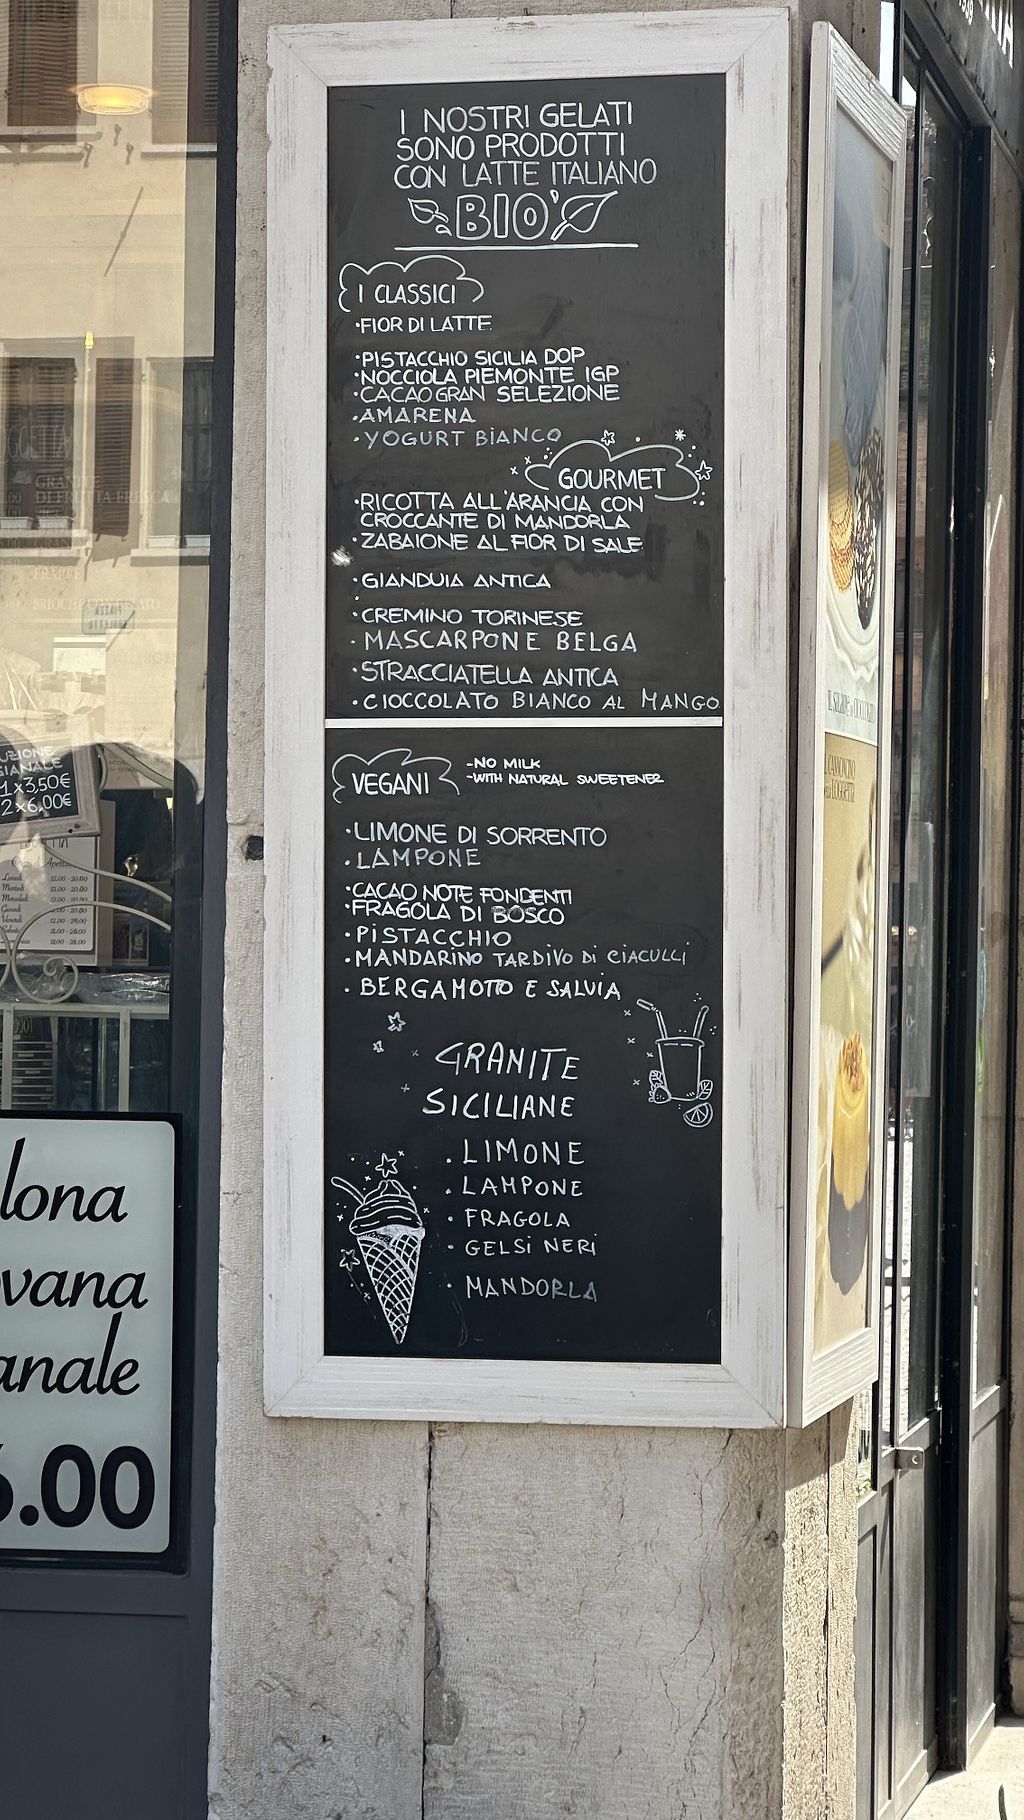 I NOSTRI GELATI
SONO PRODOTTI
CON LATTE ITALIANO
BIO'
I CLASSICI
•FIOR DI LATTE
•PISTACCHIO SICILIA DOP
•NOCCIOLA PIEMONTE IGP
•CACAO GRAN SELEZIONE
•AMARENA
•YOGURT BIANCO
GOURMET
•RICOTTA ALL'ARANCIA CON
CROCCANTE DI MANDORLA
•ZABAIONE AL FIOR DI SALE
•GIANDUIA ANTICA
•CREMINO TORINESE
•MASCARPONE BELGA
•STRACCIATELLA ANTICA
•CIOCCOLATO BIANCO AL MANGO
VEGANI
-NO MILK
-WITH NATURAL SWEETENER
•LIMONE DI SORRENTO
•LAMPONE
•CACAO NOTE FONDENTI
•FRAGOLA DI BOSCO
•PISTACCHIO
•MANDARINO TARDIVO DI CIACULLI
•BERGAMOTTO E SALVIA
GRANITE
SICILIANE
•LIMONE
•LAMPONE
•FRAGOLA
•GELSI NERI
•MANDORLA
1x3,50€
2x6,00€
lona
vana
anale
6.00